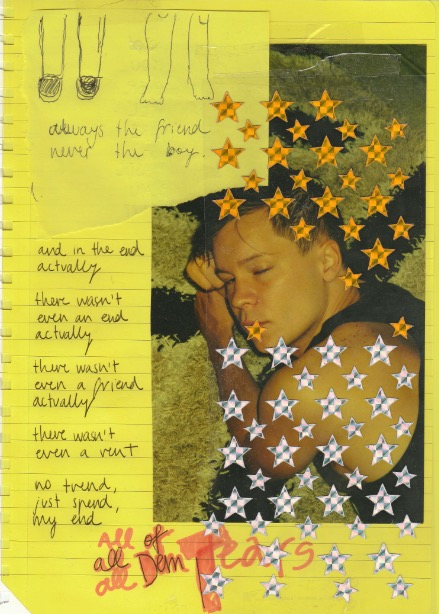 always the friend
never the boy.
and in the end
actually
there wasn't
even an end
actually
there wasn't
even a friend
actually
there wasn't
even a rent
no trend,
just spend,
my end
All of
all Dem Tears
all